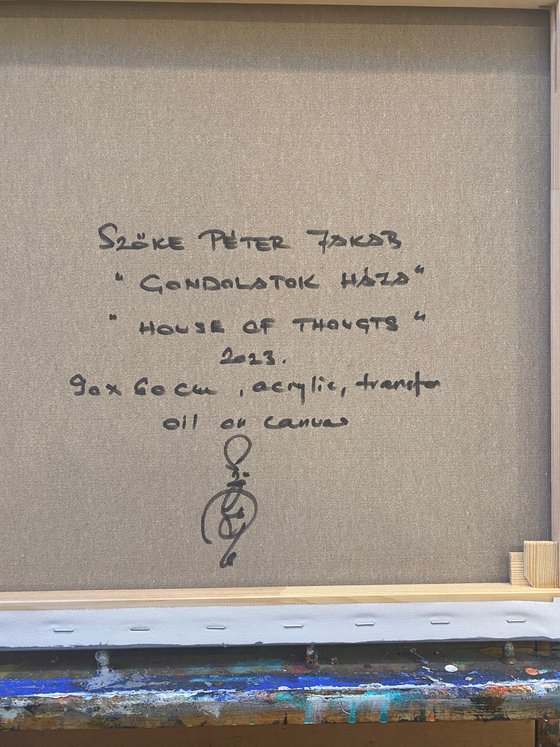 SZŐKE PÉTER JAKAB
" GONDOLATOK HÁZA "
" HOUSE OF THOUGTS "
2023.
90 x 60 cm , acrylic, transfer
oil on canvas